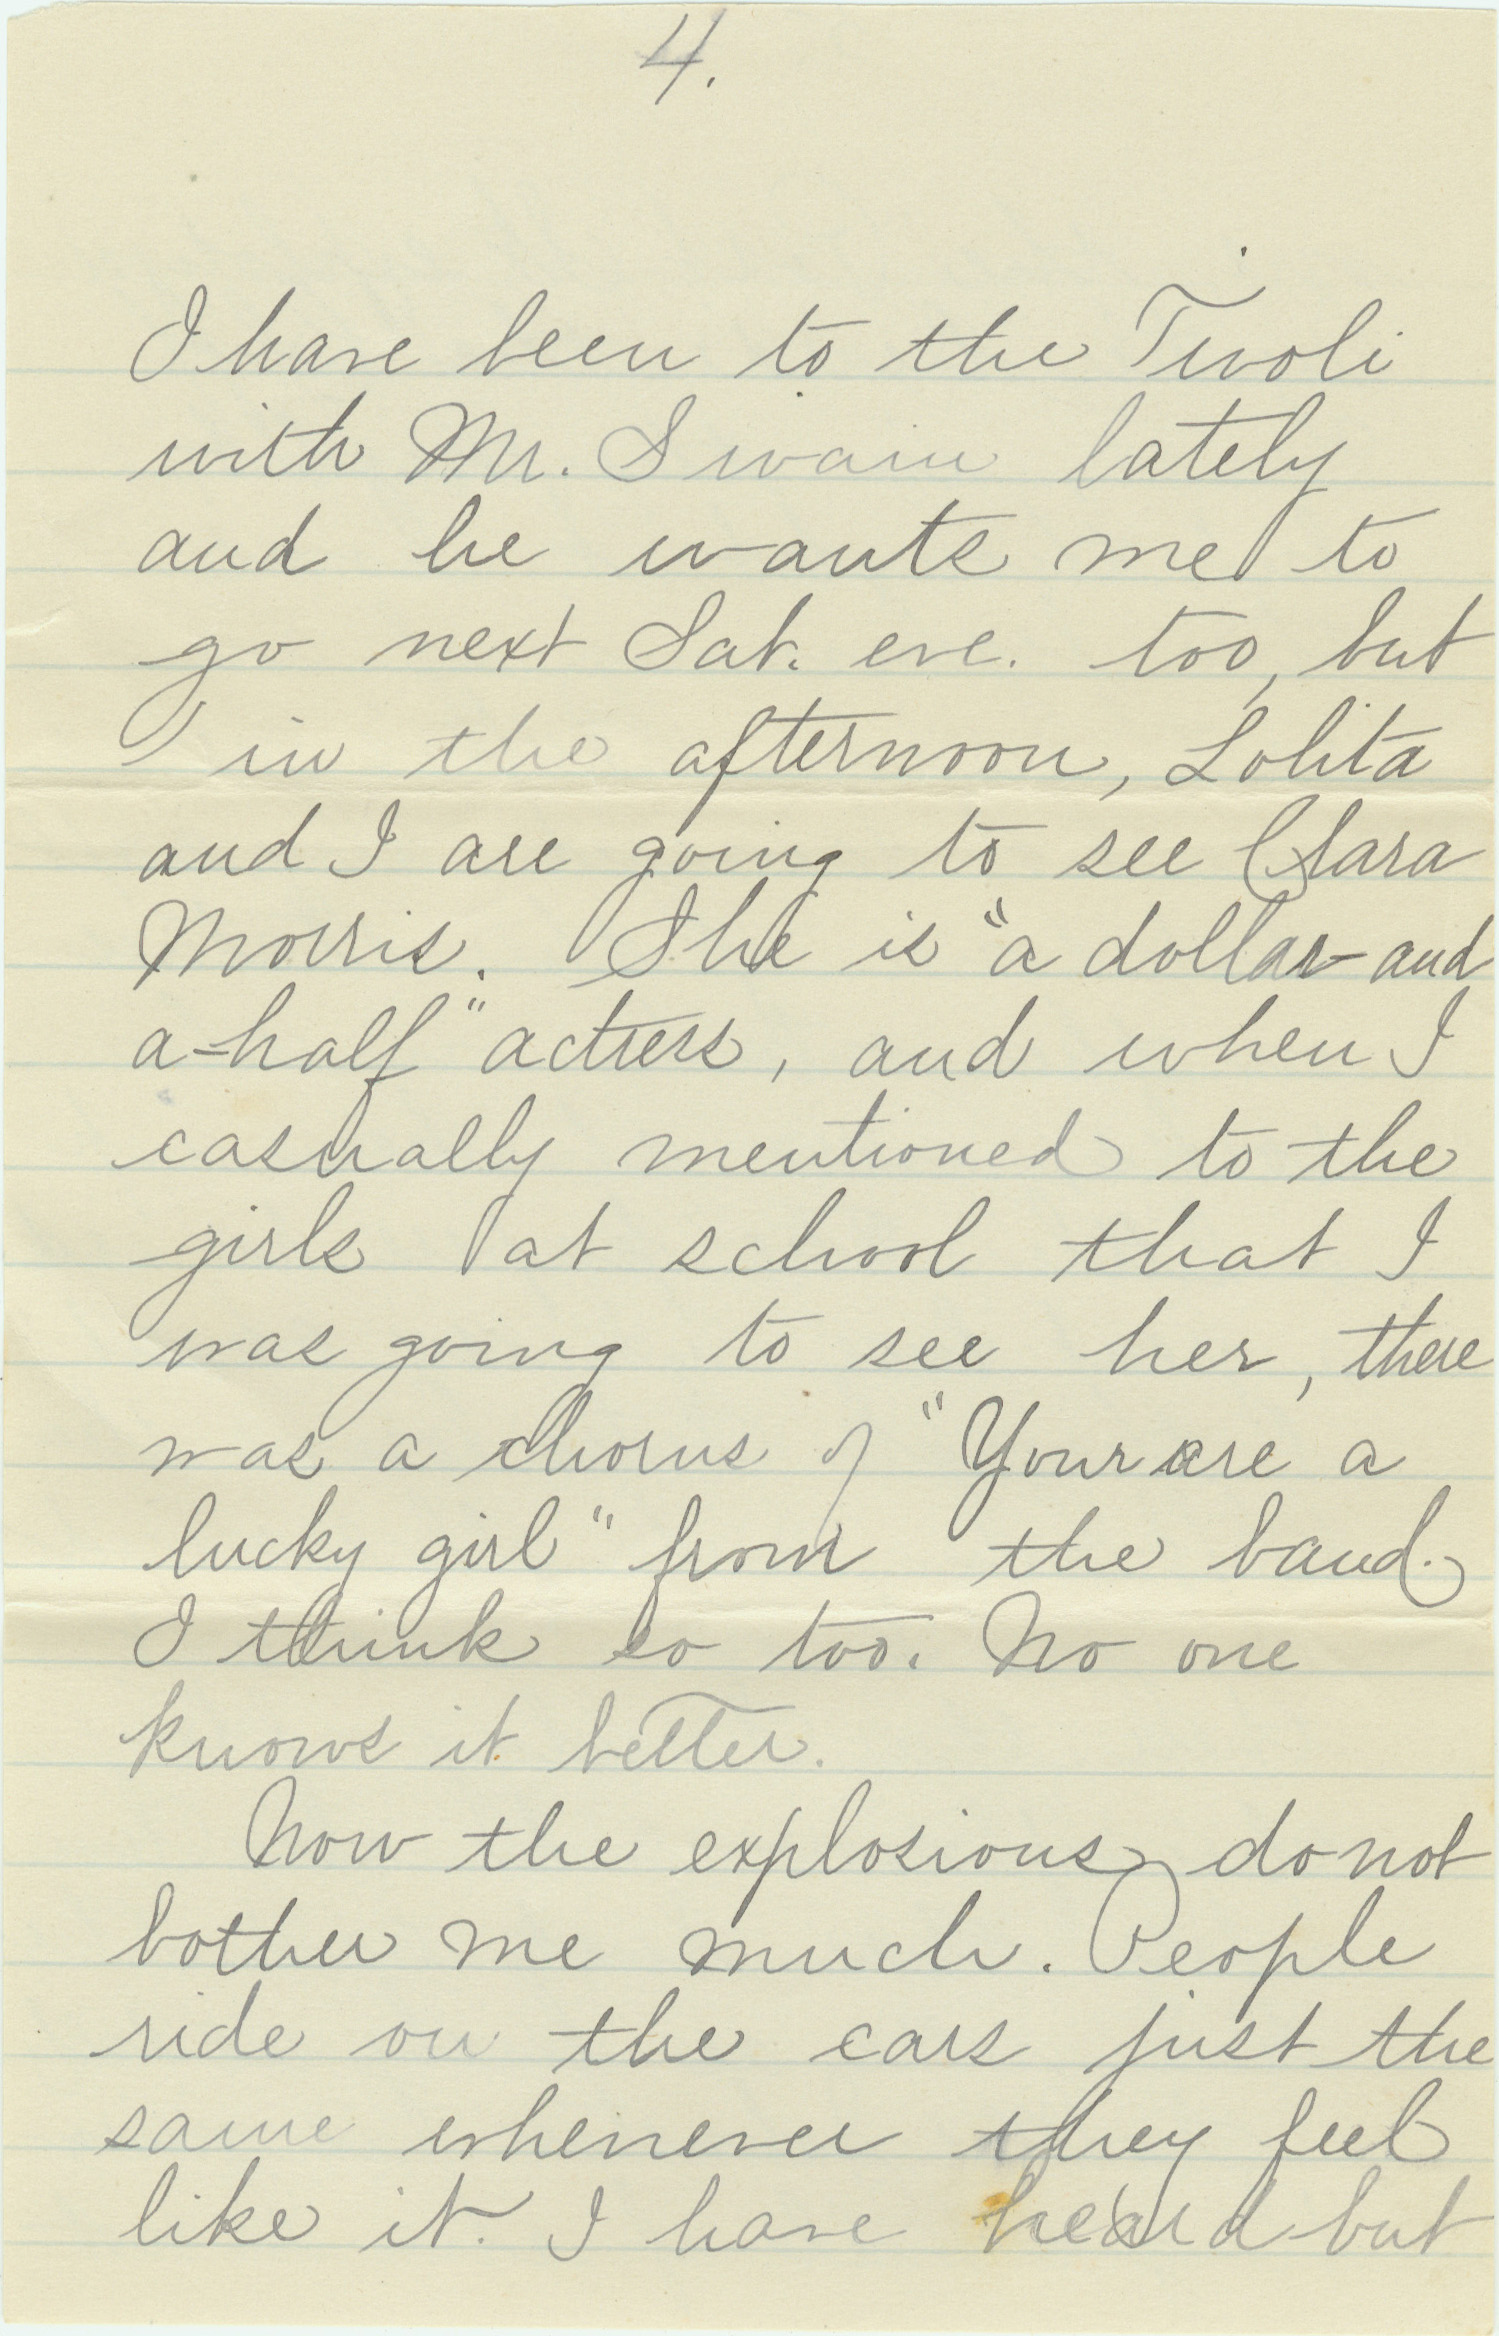 4.
I have been to the Tivoli
with Mr. Swain lately
and he wants me to
go next Sat. eve. too, but
in the afternoon, Lolita
and I are going to see Clara
Morris. She is "a dollar-and
a-half" actress, and when I
casually mentioned to the
girls at school that I
was going to see her, there
was a chorus of "Your are a
lucky girl" from the band.
I think so too. No one
knows it better.
Now the explosions do not
bother me much. People
ride on the cars just the
same whenever they feel
like it. I have heard but